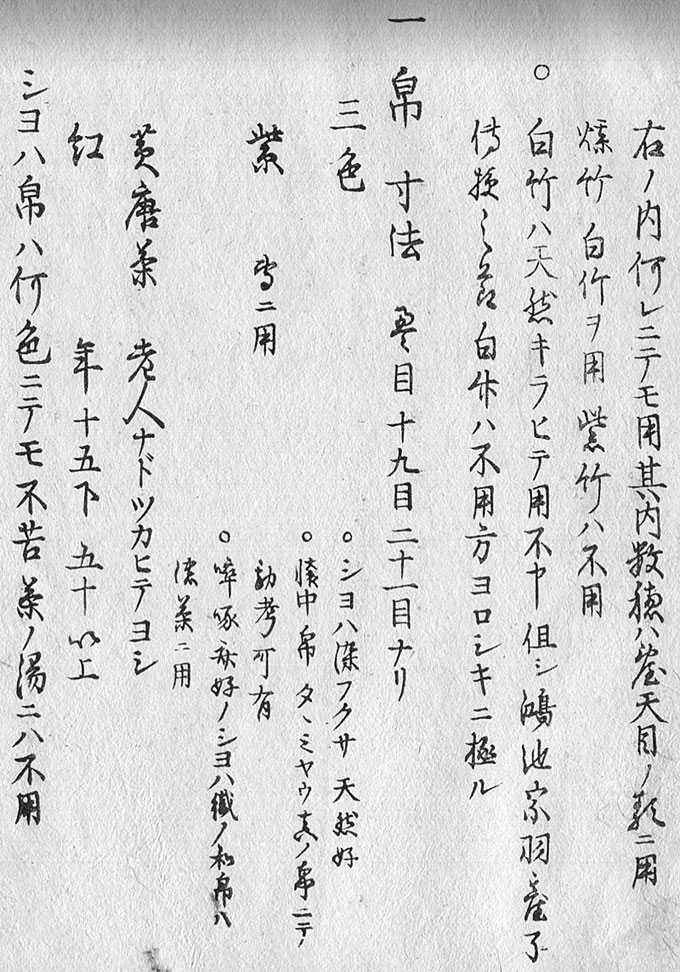 右ノ内何レニテモ用其内数穂ハ天目ノ類ニ用
煤竹白竹ヲ用紫竹ハ不用
○白竹ハ天然キラヒテ用不申但シ鴻池宗羽
伝授之節白竹ハ不用方ヨロシキニ極ル
一帛寸法 畳目十九目二十一目ナリ
三色
○シヨハ染フクサ天然好
○懐中帛タヽミヤウ真ノ帛ニテノ
勘考可有
紫 専ニ用
○啐啄斎好ノシヨハ織ノ和帛ハ
濃茶ニ用
黄唐茶 老人ナドツカヒテヨシ
紅 年十五下五十以上
シヨハ帛ハ何色ニテモ不苦茶ノ湯ニハ不用